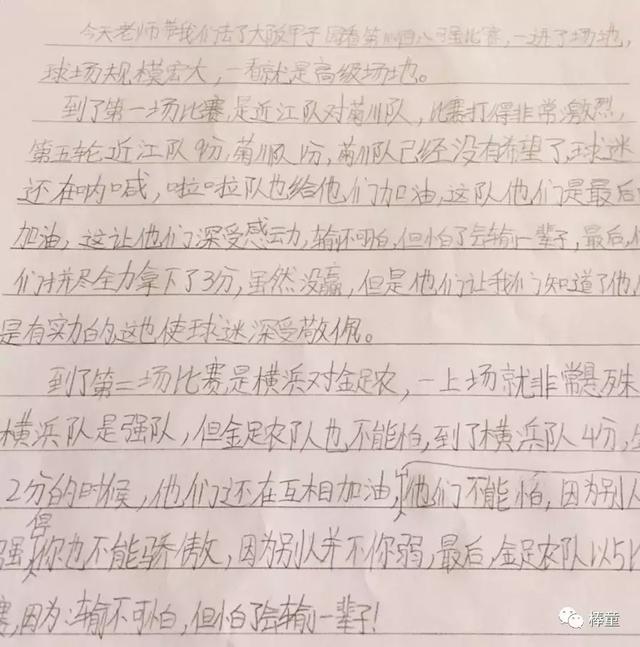 今天老师带我们去了大阪甲子园看第 八强比赛,一进了场地,
球场规模宏大,一看就是高级场地。
到了第一场比赛,是近江队对菊川队,比赛打得非常激烈,
第五轮近江队9分,菊川队1份,菊川队已经没有希望了,球迷
还在呐喊,啦啦队也给他们加油,这队他们是最后
加油,这让他们深受感动,输不可怕,但怕了会输一辈子,最后,他
们拼尽全力拿下了3分,虽然没赢,但是他们让我们知道了他们
是有实力的,这也使球迷深受敬佩。
到了第二场比赛是横浜对金足农,一上场就非常悬殊
横浜队是强队,但金足农队也不能怕,到了横浜队4分,
2分的时候,他们还在互相加油,他们不能怕,因为别人
强你也不能骄傲,因为别人并不你弱,最后,金足农队以5比
赛,因为:输不可怕,但怕了会输一辈子!
棒童